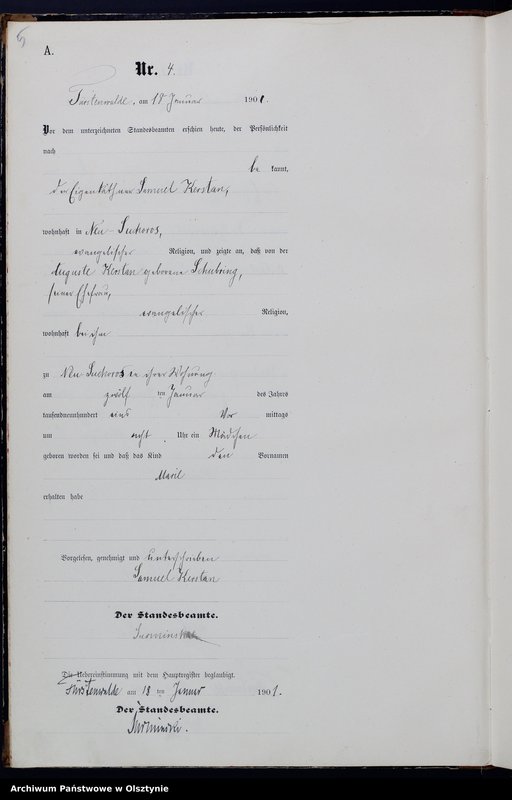 5
A.
Nr. 4.
Fürstenwalde, am 18 Januar 1901.
Vor dem unterzeichneten Standesbeamten erschien heute, der Persönlichkeit
nach
be kannt,
der Eigenkäthner Samuel Kerstan,
wohnhaft in Neu-Suchoros,
evangelischer Religion, und zeigte an, daß von der
Auguste Kerstan geborene Schubring,
seiner Ehefrau,
evangelischer Religion,
wohnhaft bei ihm
zu Neu Suchoros in ihrer Wohnung
am zwölf ten Januar des Jahres
tausendneunhundert eins Vor mittags
um acht Uhr ein Mädchen
geboren worden sei und daß das Kind den Vornamen
erhalten habe
Vorgelesen, genehmigt und unterschrieben
Samuel Kerstan
Der Standesbeamte.
Surminski
Die Uebereinstimmung mit dem Hauptregister beglaubigt.
Fürstenwalde am 18 ten Januar 1901.
Der Standesbeamte.
Surminski.
Archiwum Państwowe w Olsztynie